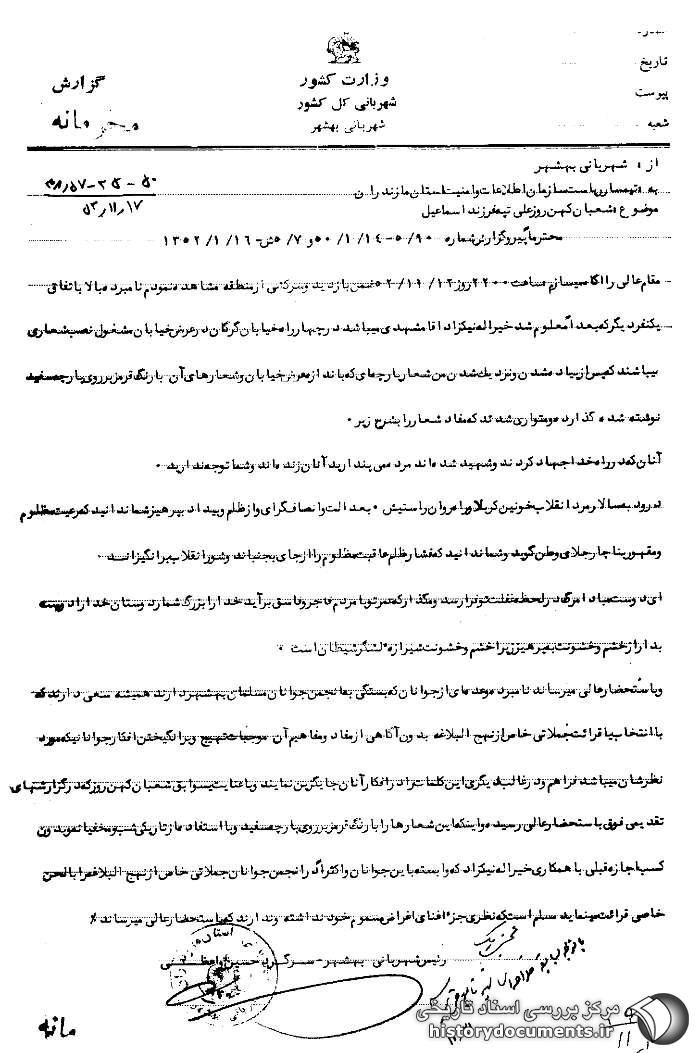 شماره
تاریخ
پیوست
شعبه
وزارت کشور
شهربانی کل کشور
شهربانی بهشهر
گزارش
محرمانه
از : شهربانی بهشهر
به : تیمسار ریاست سازمان اطلاعات و امنیت استان مازندران
موضوع : شعبان کهن روز علی تپه فرزند اسماعیل
۵۰-۲۵-۳۸٫۵۷
۵۲٫۱۱٫۱۷
محترما پیرو گزارش شماره ۵/۹۰-۵۰/۱/۱۴ و ۵/۷ش-۱۳۵۲/۱/۱۶
مقام عالی را آگاه میسازم ساعت ۲۲۰۰ روز ۵۲/۱۱/۱۲ ضمن بازدید و سرکشی از منطقه مشاهده نمودم نامبرده بالا با تفاق
یکنفر دیگر که بعداً معلوم شد خیراله نیکزاد اقا مشهدی میباشد در چهارراه خیابان گرگان در عرض خیابان مشغول نصب شعاری
میباشند که پس از پیاده شدن و نزدیک شدن من شعار پارچه‌ای که باند از معرض خیابان و شعارهای آن با رنگ قرمز بر روی پارچه سفید
نوشته شده گذارده و متواری شدند که مفاد شعار را بشرح زیر ۰
آنان که در راه خدا جهاد کردند و شهید شده‌اند مرده می پندارید آنان زنده‌اند و شما توجه ندارید ۰
درود به سالار مرد انقلاب خونین کربلا و راه روان راستینش ۰ بعدالت و انصاف گرای و از ظلم و بیداد بپرهیز شما دانید که رعیت مظلوم
و مقهور بناچار جلای وطن گوید و شما دانید که فشار ظلم عاقبت مظلوم را از جای بجنباند و شور انقلاب برانگیزاند
ای دوست مبادا مرگ در لحظه غفلت تو فرا رسد و مگذار که مهر تو با مردم فاجر و فاسق برآید خدا را بزرگ شمار دوستان خدا را دوست
بدار از خشم و خشونت بپرهیز زیرا خشم و خشونت شیرازه لشگر شیطان است ۰
و باستحضار عالی میرساند نامبرده و عده‌ای از جوانان که بستگی به انجمن جوانان مسلمان بهشهر دارند همیشه سعی دارند که
با انتخاب یا قرائت جملاتی خاص از نهج البلاغه بدون آگاهی از مفاد و مفاهیم آن موجبات تهییج و برانگیختن افکار جوانانیکه مورد
نظرشان میباشد فراهم و در غالب دیگری این کلمات را در افکار آنان جایگزین نمایند و با عنایت بسوابق شعبان کهن روز که در گزارشهای
تقدیمی فوق باستحضار عالی رسیده و اینکه این شعارها را با رنگ قرمز بر روی پارچه سفید و با استفاده از تاریکی شب و مخفیانه و بدون
کسب اجازه قبلی با همکاری خیراله نیکزاد که وابسته باین جوانان و اکثراً در انجمن جوانان جملاتی خاص از نهج البلاغه را با لحن
خاصی قرائت مینماید مسلم است که نظری جز افنای اغراض مسموم خود نداشته و ندارند که باستحضار عالی میرساند ٪
رئیس شهربانی بهشهر - سرگرد حسین
مانه
مرکز بررسی اسناد تاریخی
historydocuments.ir